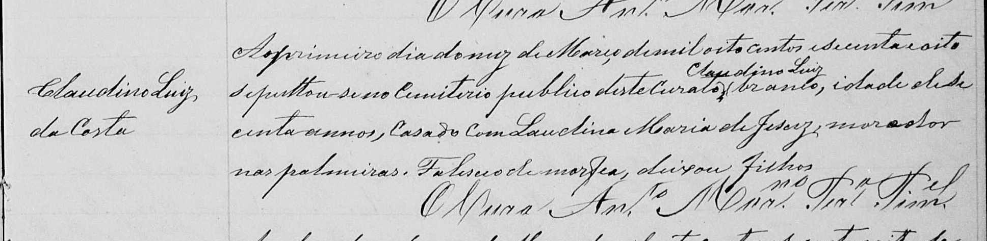 O Cura Ant.º Mor.
Claudino Luiz
da Costa
Ao primeiro dia do mez de Março de mil oito centos e secenta e oito
sepultou-se no Cemiterio publico deste Curato, Claudino Luiz branco, idade de se
centa annos, Casado com Laudina Maria de Jesuz, morador
nas palmeiras. Faleseo de morfea, deixou filhos
O Cura Ant.º Mor.